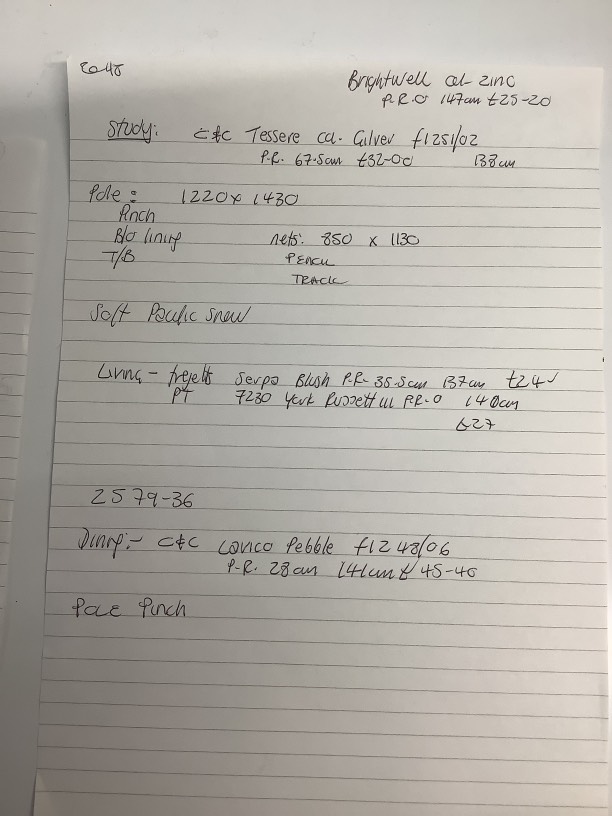 Brightwell col- zinc
P.R.O 147cm £25-20
Study: C&C Tessere col. Gilver f1251/02
P.R. 67.5cm £32-00 138cm
Pole: 1220 x 1430
Pinch
B/O lining nets: 850 x 1130
T/B PENCIL
TRACK
Soft Pacific Snow
Living - Serpa Blush P.R- 35.5cm 137cm £24
7230 York Russett P.R.O 140cm
£27
2579-36
Dining:- C&C Lovico Pebble f1248/06
P.R. 28cm 141cm £45-40
Pole Pinch